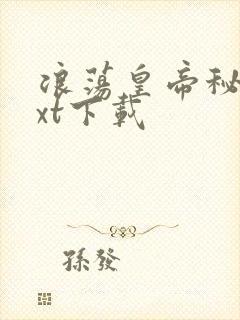 浪蕩皇帝秘
xt下載
孫發